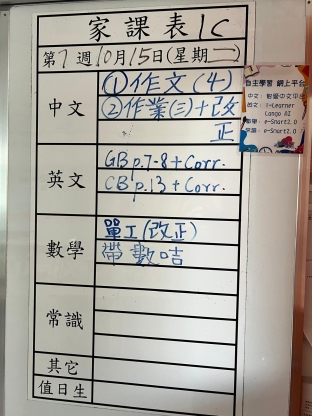 家課表 1C
第7週10月15日(星期二)
中文
①作文(4)
②作業(三)+改正
英文
GB p.7-8 + Corr.
CB p.13 + Corr.
數學
單工(改正)
帶數咭
常識
其它
值日生
自主學習 網上平台
i-Learner
e-Smart2.0
e-Smart2.0